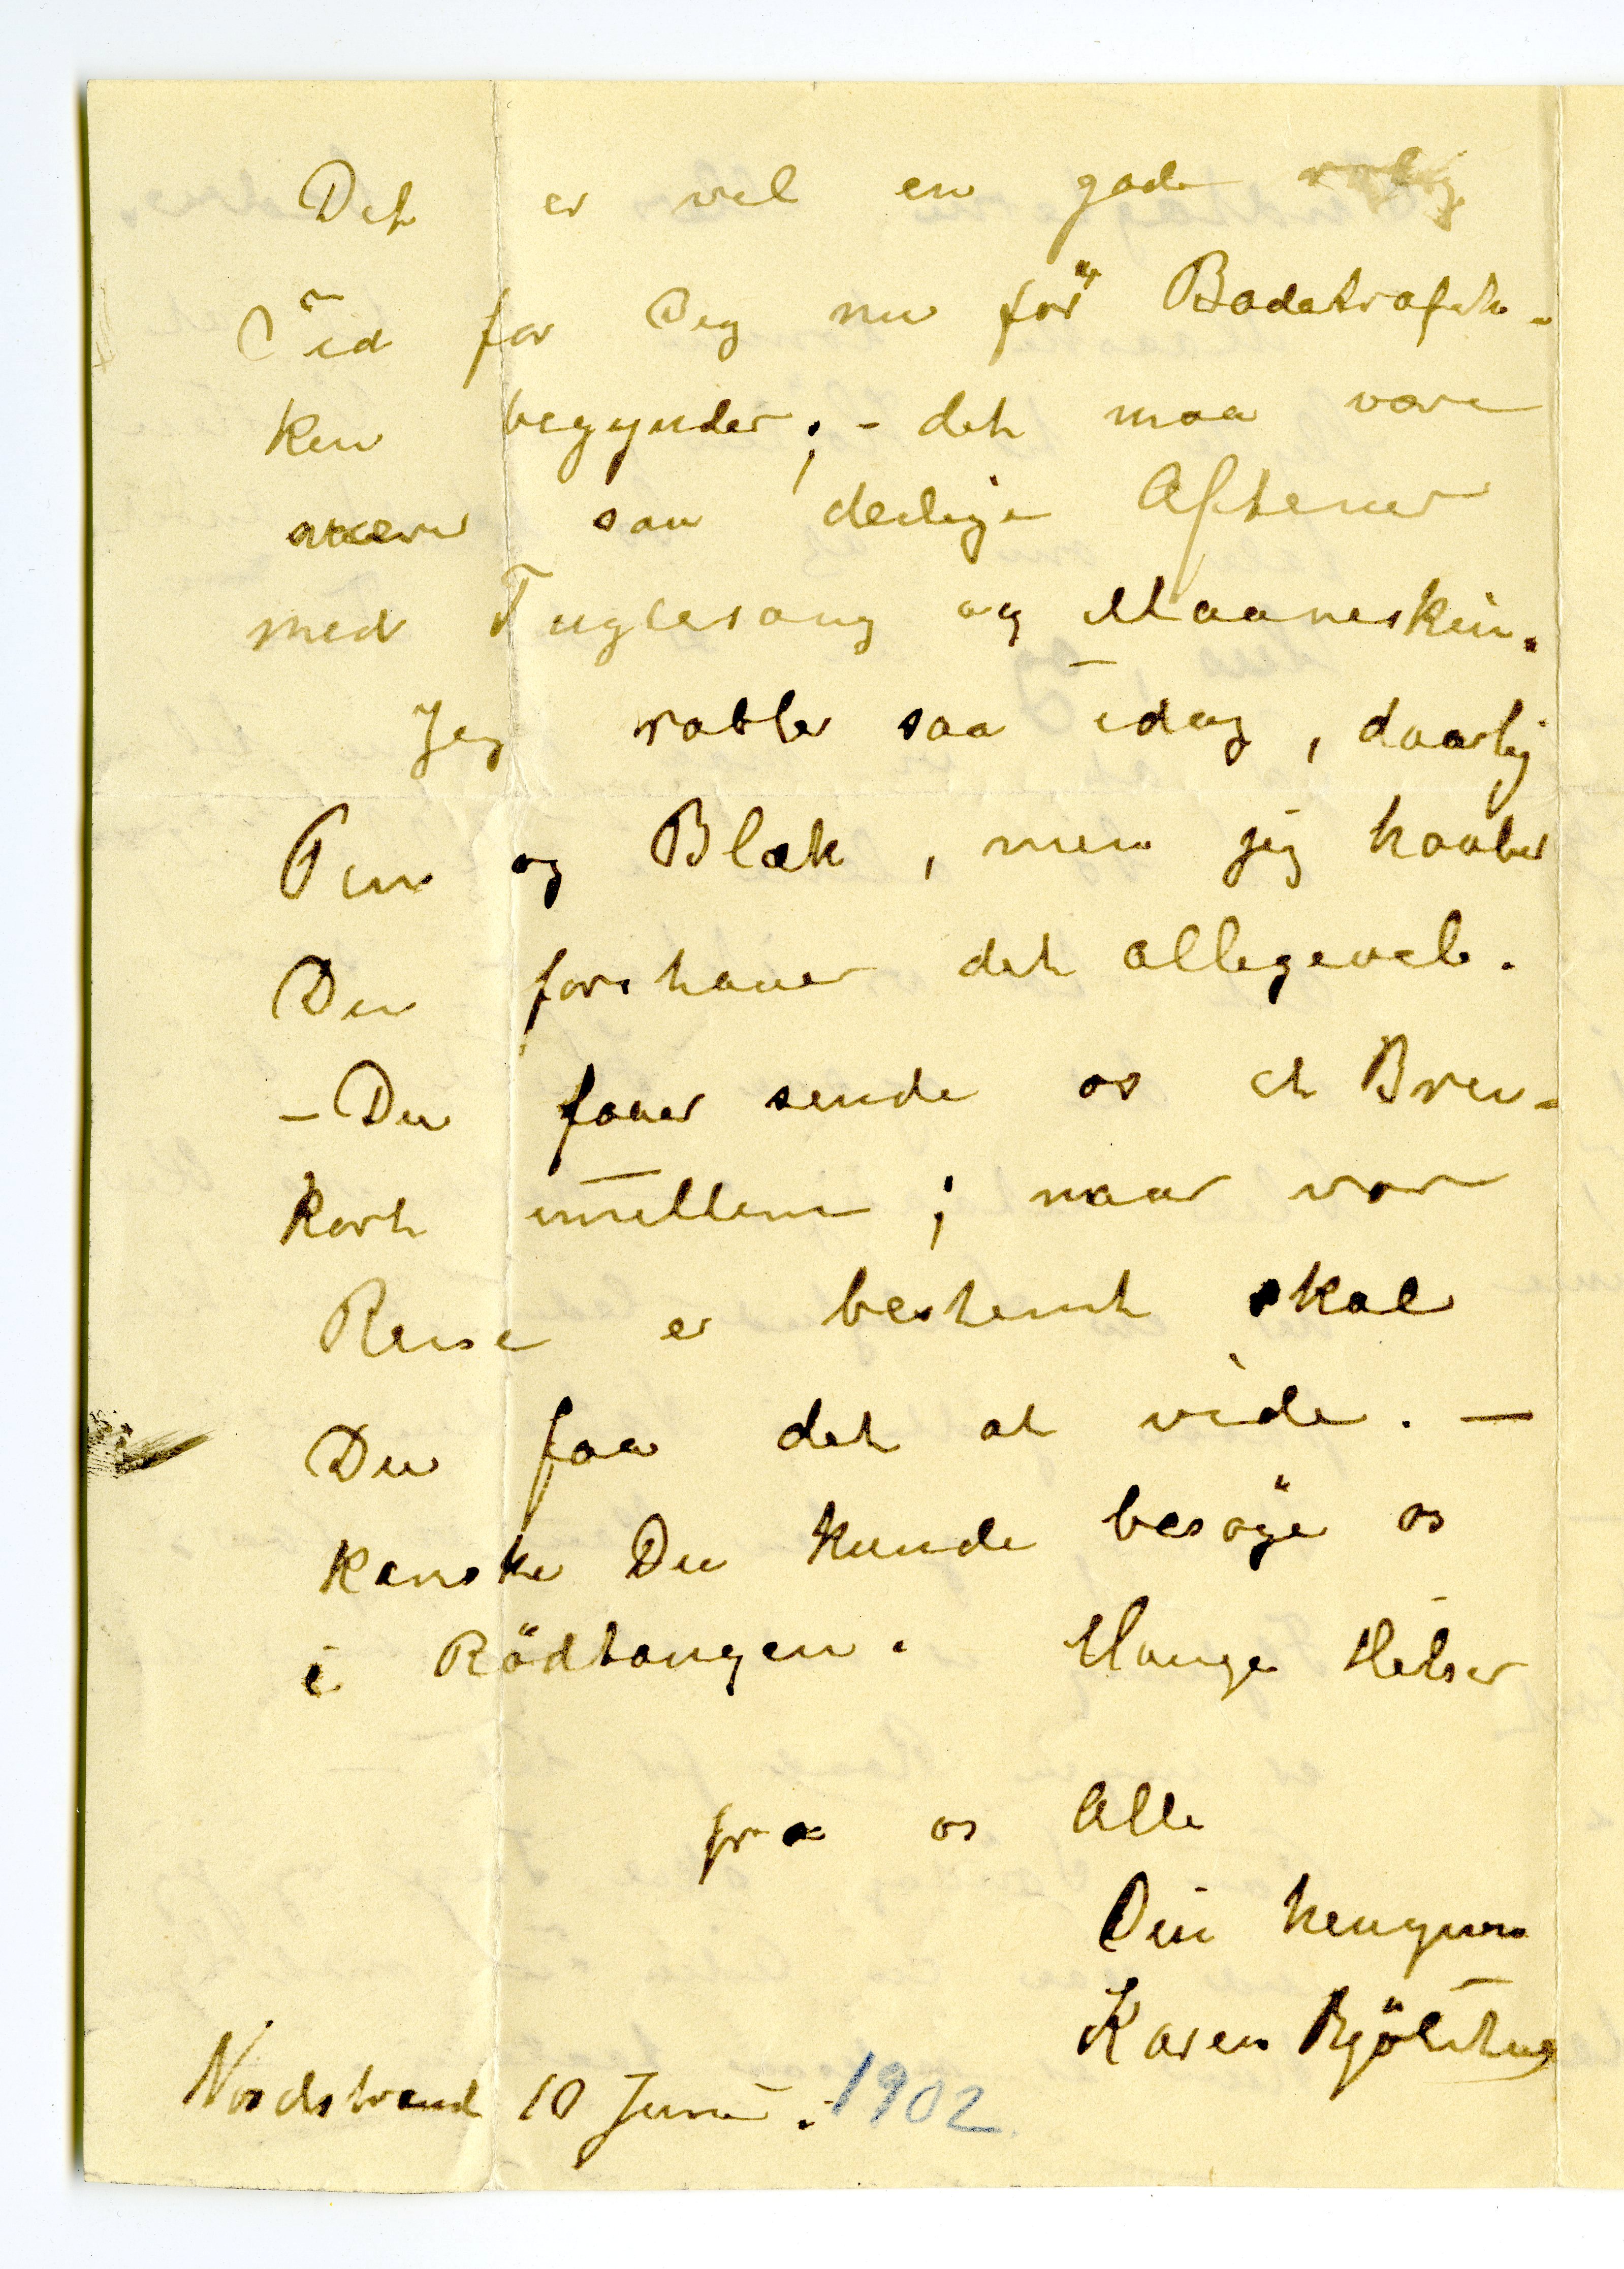 Det er vel en gode rolig
Tid for Deg nu för Badetrafik-
ken begynder; - det maa være
svært saa deilige Aftener
med Fuglesang og Maaneskin.
Jeg rabler saa idag, daarlig
Pen og Blæk, men jeg haaber
Du forstaaer det alligevel.
- Du faaer sende os et Brev-
kort imellem; naar vor
Reise er bestemt skal
Du faa det at vide. —
kanske Du kunde besöge os
i Rödtangen. Mange Helser
fra os Alle
Din hengivne
Karen Bjölstad
Nordstrand 10 Juni. 1902